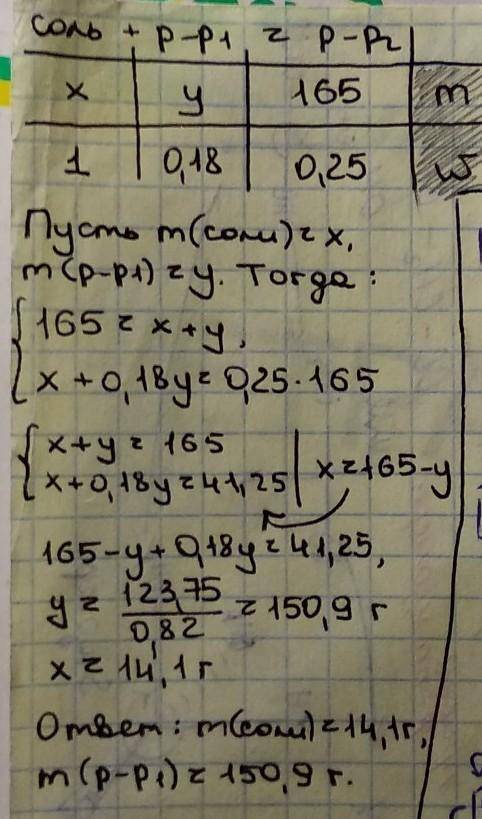 соль + р-р1 = р-р2
x y 165 m
1 0,18 0,25 w
Пусть m(соли) = x,
m(р-р1) = y. Тогда:
165 = x + y,
x + 0,18y = 0,25·165
x + y = 165
x + 0,18y = 41,25 | x = 165 - y
165 - y + 0,18y = 41,25,
y = 123,75/0,82 = 150,9 г
x = 14,1 г
Ответ: m(соли) = 14,1г,
m(р-р1) = 150,9 г.